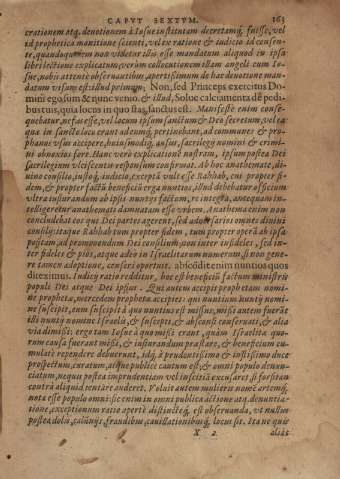 CAPVT SEXTVM. 163
crationem atq. deuotionem à Iosue institutam decretamq́. fuisse, vel
id prophetica monitione scienti, vel ex ratione & iudicio id censen-
te, quandoquidem non videtur illi esse mandatum aliquod in ipsa
libri lectione explicatum, verùm collocutionem illam angeli cum Io-
sue, nobis attentè obseruantibus, apertissimum de hac deuotione man-
datum visum est: illud primum; Non, sed Princeps exercitus Do-
mini ego sum & nunc venio. & illud, Solue calciamenta de pedi-
bus tuis, quia locus in quo stas, sanctus est. Manifestè enim conse-
quebatur, nefas esse, vel locum ipsum sanctum & Deo secretum, vel ea
quæ in sancto loco erant ad eumq́. pertinebant, ad communes & pro-
phanos vsus accipere, huiusmodiq́. ausus, sacrilegij nomini & crimi-
ni obnoxios fore. Hanc verò explicationē nostram, ipsum postea Dei
sacrilegium vlciscentis responsum confirmat. Ab hoc anathemate, di-
uino consilio, iussoq́, iudicio, exceptā vult esse Rahhab, cui propter fi-
dem, & propter factū beneficiū erga nuntios, illud debebatur officium
vltra iusiurandum ab ipsis nuntijs factum, re integra, antequam in-
telligeretur anathemati damnatam esse vrbem. Anathema enim non
concludebat eos qui Dei partes agerent, sed aduersarios omnes diuini
consilij: itaque Rahhab tum propter fidem, tum propter operā ab ipsa
positam, ad promouendum Dei consilium, non inter infideles, sed in-
ter fideles & pios, atque adeo in Israelitarum numerum, si non gene-
re tamen adoptione, censeri oportuit. abscōdit enim nuntios quos
direximus. Iudicij ratio redditur, hoc est beneficiū factum ministris
populi Dei atque Dei ipsius. Qui autem accipit prophetam nomi-
ne prophetæ, mercedem prophetæ accipiet: qui nuntium nuntij nomi-
ne suscipit, eum suscipit à quo nuntius est missus, missi autem fuerāt
illi nuntij nomine Israelis, & suscepti, & absconsi, conseruati, & alia
via dimissi: ergo tam Iosue à quo missi erant, quàm Israelitæ quo-
rum causa fuerant missi, & iusiurandum præstare, & beneficium cu-
mulatè rependere debuerunt, idq́. à prudentissimo & iustissimo duce
prospectum, curatum, atque publicè cautum est; & omni populo denun-
ciatum, ne quis postea imprudentiam vel inscitiā excusans, si forsitan
contrà aliquid tentare auderet. Voluit autem mulieris nomē artemq́.
nota esse populo omni: sic enim in omni publica actione atq. denuntia-
tione, exceptionum ratio apertè distinctéq́. est obseruanda, vt nullus
postea dolis, calūnijs, fraudibus, cauillationibusq́. locus sit. Ita ne quis
X 2 aliàs